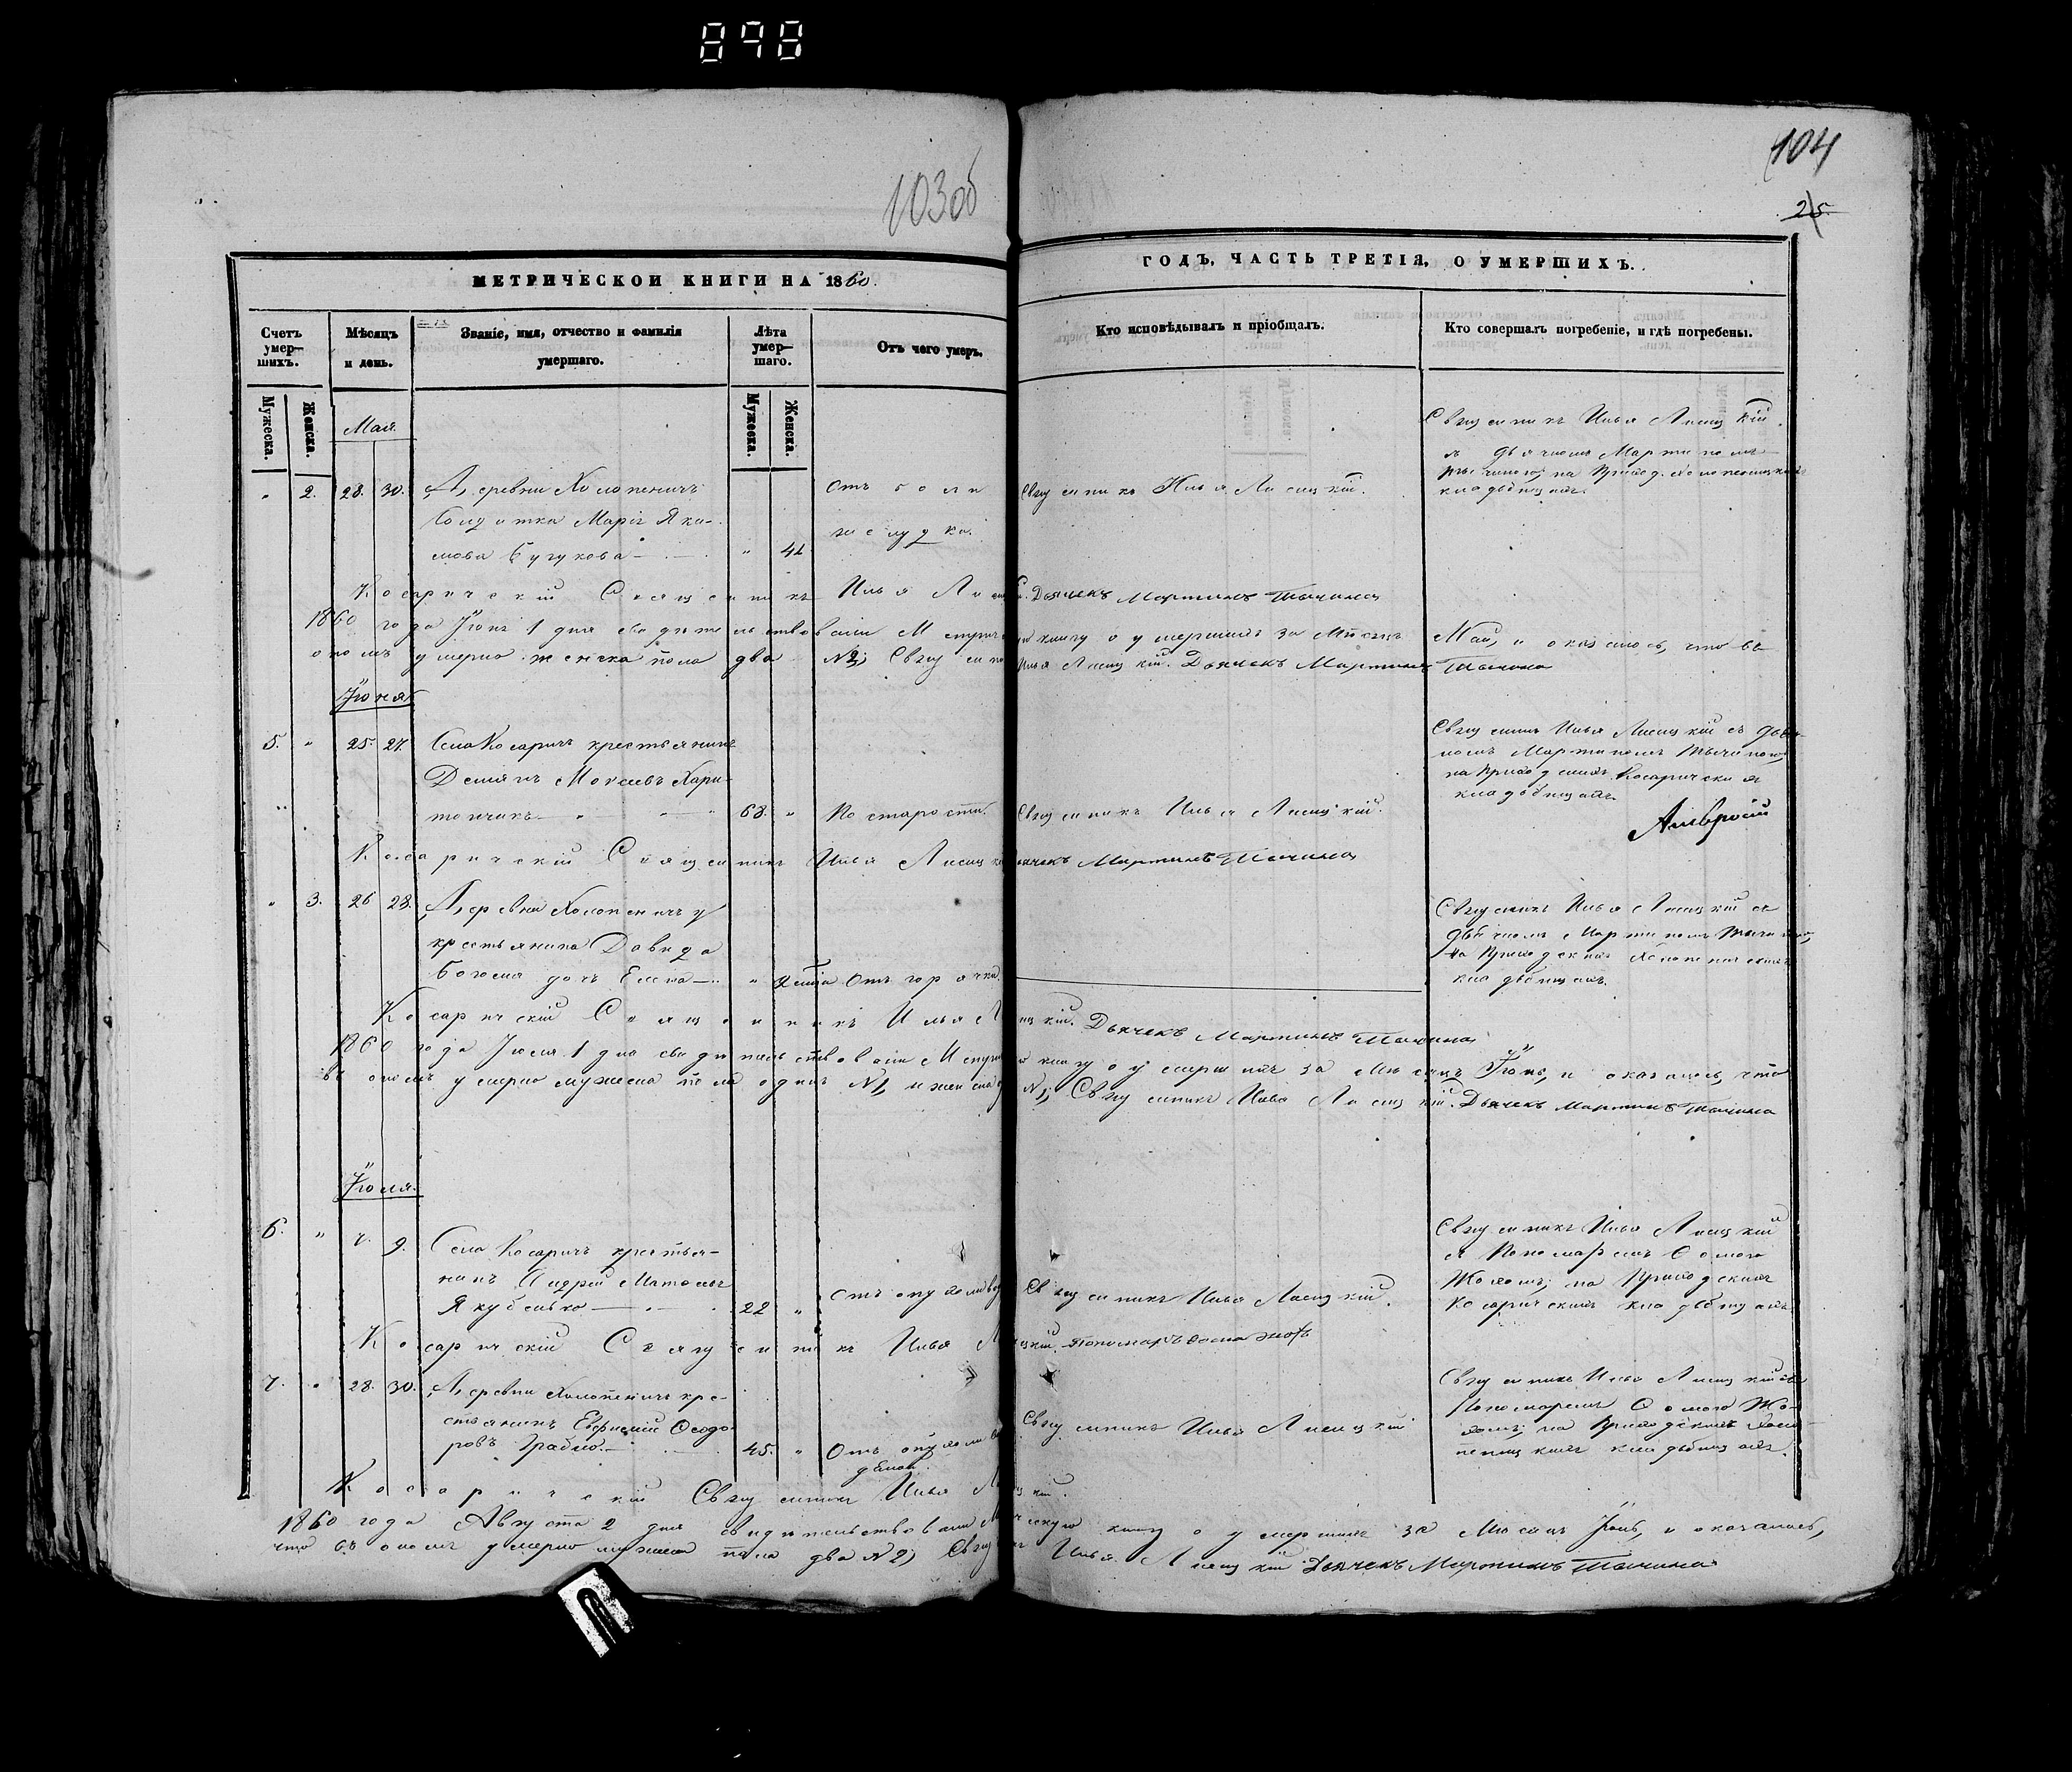 898
103 об
104
25.
МЕТРИЧЕСКОЙ КНИГИ НА 1860.
ГОДЪ, ЧАСТЬ ТРЕТІЯ, О УМЕРШИХЪ.
Счетъ умер-шихъ.
Мѣсяцъ и день.
Званіе, имя, отчество и фамилія умершаго.
Лѣта умер-шаго.
Отъ чего умеръ.
Кто исповѣдывалъ и пріобщалъ.
Кто совершалъ погребеніе, и гдѣ погребены.
Мужеска.
Женска.
Мужеска.
Женска.
Мая.
Священникъ Илья Лисицкій
съ дьячкомъ Мартиномъ
на Приход. Холопеницкихъ
кладбищахъ.
" 2. 28. 30. Деревни Холопеничъ
Солдатка Марія Яки-
мова Бугукова — " 41
Отъ боли
желудка.
Священникъ Илья Лисицкій.
Косаричскій Священникъ Илья Лисицкій. Дьячекъ Мартинъ Тычина
1860 года Іюня 1 дня свидѣтельствовали Метрическую книгу о умершихъ за Мѣсяцъ Май, и оказалось, что въ
ономъ умерло женска пола два № 2; Священникъ Илья Лисицкій. Дьячекъ Мартинъ Тычина
Іюня
5. " 25. 27. Села Косаричъ крестьянинъ
Деміанъ Мокеевъ Хари-
тончикъ — 68. " По старости.
Священникъ Илья Лисицкій.
Священникъ Илья Лисицкій съ дьяч-
комъ Мартиномъ Тычиною,
на Приходскихъ Косаричскихъ
кладбищахъ.
Амвросій
Косаричскій Священникъ Илья Лисицкій Дьячекъ Мартинъ Тычина
" 3. 26 28. Деревни Холопеничъ у
крестьянина Давида
дочь Елена — " Отъ горячки
Священникъ Илья Лисицкій съ
дьячкомъ Мартиномъ Тычиною,
на Приходскихъ Холопеничскихъ
кладбищахъ.
Косаричскій Священникъ Илья Лисицкій. Дьячекъ Мартинъ Тычина
1860 года Іюля 1 дня свидѣтельствовали Метрическую книгу о умершихъ за Мѣсяцъ Іюнь, и оказалось, что
въ ономъ умерло мужеска пола одинъ № 1, и женска № 1; Священникъ Илья Лисицкій. Дьячекъ Мартинъ Тычина
Іюля.
6. " 7. 9. Села Косаричъ крестья-
нинъ Андрей
Якубенко — 22 "
Священникъ Илья Лисицкій.
Священникъ Илья Лисицкій
съ Пономаремъ Ѳомою
на Приходскихъ
Косаричскихъ кладбищахъ
Косаричскій Священникъ Илья Лисицкій. Пономарь Ѳома
7. " 28. 30. Деревни Холопеничъ кре-
стьянинъ Евфимій Ѳеодо-
ровъ — 45. "
Священникъ Илья Лисицкій
Священникъ Илья Лисицкій съ
Пономаремъ Ѳомою
на Приходскихъ Холо-
пеницкихъ кладбищахъ.
Косаричскій Священникъ Илья Лисицкій.
1860 года Августа 2 дня свидѣтельствовали Метрическую книгу о умершихъ за Мѣсяцъ Іюль, и оказалось,
что въ ономъ умерло мужеска пола два № 2; Священникъ Илья Лисицкій Дьячекъ Мартинъ Тычина